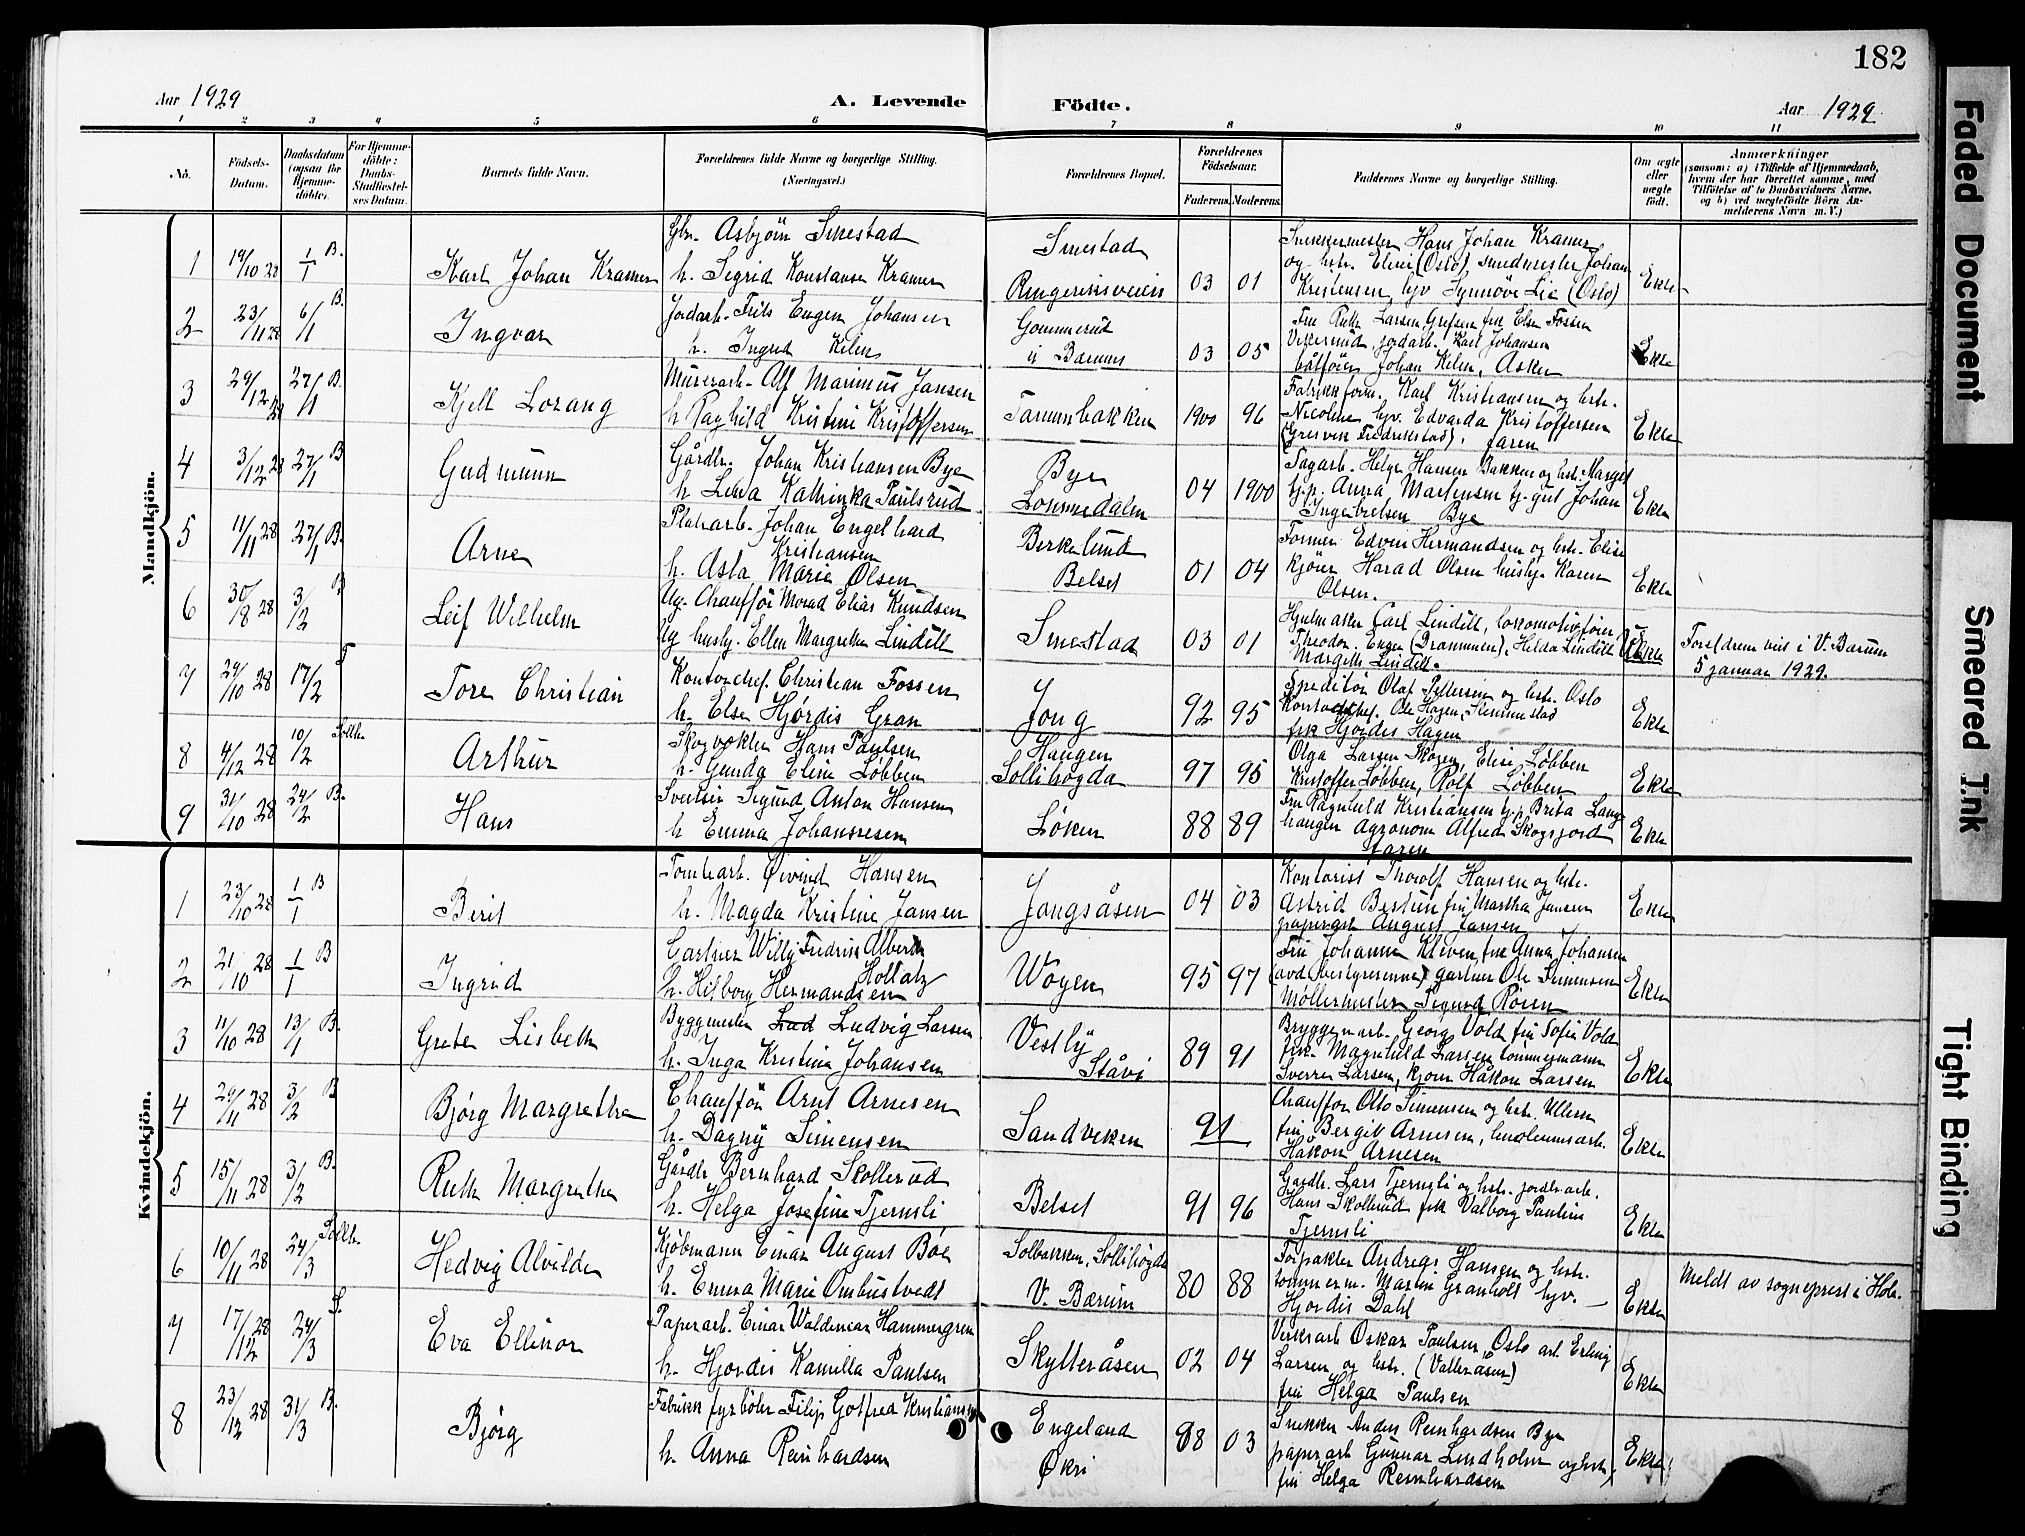 182
Aar 1929
A. Levende
Födte.
Aar 1929
1 2 3 4 5 6 7 8 9 10 11
No.
Födsels-
Datum.
Daabsdatum
(ogsaa for
Hjemme-
döbte).
For Hjemme-
döbte:
Daabs-
Stadfæstel-
ses Datum.
Barnets fulde Navn.
Forældrenes fulde Navne og borgerlige Stilling.
(Næringsvei.)
Forældrenes Bopæl.
Forældrenes
Födselsaar.
Faderens. Moderens.
Faddernes Navne og borgerlige Stilling.
Om ægte
eller
uægte
født.
Anmærkninger
(saasom: a) i Tilfælde af Hjemmedaab,
hvem der har forrettet samme, med
Tilföielse af to Daabsvidners Navne,
og b) ved uægtefödte Börn An-
melderens Navn m. V.)
Mandkjön.
1 19/10 28 1/1 B.
Karl Johan Kramer
Gbr. Asbjörn Smestad
h. Sigrid Konstanse Kramer
Smestad
Ringeriksveien
03 01
Snekkermester Hans Johan Kramer
og hstr. Elini (Oslo) smedmester Johan
Kristensen, hjv Synnöve Lie (Oslo)
Ekte
2 23/11 28 6/1 B.
Ingvar
Jordarb. Frits Eugen Johansen
h. Ingrid Kilen
Gommerud
i Bærums
03 05
Fru Ruth Larsen Grefsen frk Else Fossen
Vikersund, jordarb. Karl Johansen
båtförer Johan Kilen, Asker
Ekte
3 29/12 28 27/1 B.
Kjell Lorang
Murerarb. Alf Marinius Jansen
h Ragnhild Kristine Kristoffersen
Tanumbakken
1900 96
Fabrikkform. Karl Kristiansen og hstr.
Nicoline hjv. Edvarda Kristoffersen
(Gresvik Fredrikstad). faren
Ekte
4 3/12 28 27/1 B
Gudmunn
Gårdbr. Johan Kristiansen Bye
h Lena Kathinka Paulsrud
Bye
Lommedalen
04 1900
Sagarb. Helge Hansen Bakken og hst. Margit
hj.p. Anna Martinsen hj.gut Johan
Ingebretsen Bye
Ekte
5 11/11 28 27/1 B.
Arne
Platearb. Johan Engelhard
Kristiansen
h. Asta Marie Olsen
Birkelund
Belset
01 04
Former Edvin Hermandsen og hstr. Elise
kjörer Harad Olsen husbje Karen
Olsen.
Ekte
6 30/8 28 3/2 B
Leif Wilhelm
Ug. Chaufför Morad Elias Knudsen
Ug husbj. Ellen Margrethe Lindell
Smestad
03 01
Hjulmaker Carl Lindell, lokomotivförer
Theodor Enger (Drammen), Helda Lindell
Margith Lindell.
Ekte
Foreldrene viet i V. Bærum
5 januar 1929.
7 29/10 28 17/2 T
Tore Christian
Kontorchef. Christian Fossen
h. Else Hjørdis Gran
Jong
92 95
Speditör Olaf Pettersen og hstr. Oslo
Kontorchef. Ole Hagen, Slemmestad
frk Hjørdis Hagen
Ekte
8 4/12 28 10/2 Sollih.
Arthur
Skogvokter Hans Paulsen
h. Gunda Eline Løbben
Haugen
Sollihögda
97 95
Olga Larsen Skogen, Elise Løbben
Kristoffer Løbben, Rolf Løbben
Ekte
9 31/10 28 24/2 B.
Hans
Sveitser Sigurd Anton Hansen
h Emma Johannesen
Løken
88 89
Fru Ragnhild Kristiansen hj.p Brita Lang-
haugen Agronom Alfred Skogsjord
faren
Ekte
Kvindekjön.
1 23/10 28 1/1 B
Berit
Tomtearb. Øivind Hansen
h. Magda Kristine Jansen
Jongsåsen
04 03
Kontorist Thorolf Hansen og hstr.
Astrid Bestun fru Martha Jansen
papirarb August Jansen
Ekte
2 21/10 28 1/1 B
Ingrid
Gartner Willy Fredrik Albert
Hollatz
h. Hilborg Hermandsen
Wøyen
95 97
Fru Johanne Kleven, frk Anna Johansen
(avd.bestyrerinne) gartner Ole Simensen
Møllermester Sigurd Røren
Ekte
3 11/10 28 13/1 B.
Grete Lisbeth
Byggmester Lud Ludvig Larsen
h. Inga Kristine Johansen
Vestly
Ståvi
89 91
Bryggeriarb. Georg Vold fru Sofie Vold
frk. Magnhild Larsen tømmermann
Sverre Larsen, kjörer Håkon Larsen
Ekte
4 29/11 28 3/2 B
Bjørg Margrethe
Chaufför Arnt Arnesen
h. Dagny Simensen
Sandviken
91
Chauffør Otto Simensen og hstr. Ullern
fru Bergit Arnesen, linoleumsarb.
Håkon Arnesen
Ekte
5 15/11 28 3/2 B.
Ruth Margrethe
Gårdbr Bernhard Skollerud
h. Helga Josefine Tjernsli
Belset
91 96
Gardbr. Lars Tjernsli og hstr. jordbrarb.
Hans Skollerud frk Valborg Pauline
Tjernsli
Ekte
6 10/11 28 24/3 Sollih.
Hedvig Alvilde
Kjöbmann Einar August Boe
h. Emma Marie Ombustvedt
Solbakken, Sollihögda
V. Bærum
80 88
Forpakter Andreas Hansen og hstr.
tommerm. Martin Granholt hjv. –
Hjordis Dahl
Ekte
Meldt av sogneprest i Hole.
7 17/12 28 24/3 S.
Eva Ellinor
Papirarb. Einar Waldemar Hammergren
h. Hjordis Kamilla Paulsen
Skytteråsen
02 04
Verksarb Oskar Paulsen, Oslo arb. Erling
Larsen og hstr. (Valleråsen)
fru Helga Paulsen
Ekte
8 23/12 28 31/3 B.
Bjørg
Fabrikk fyrböter Filip Gotfred Kristiansen
h. Anna Reinhardsen
Engeland
Økri
98 03
Snekker Anders Reinhardsen Bye
papirarb Gunnar Lindholm og hstr.
fru Helga Reinhardsen
Ekte
Faded Document
Smeared Ink
Tight Binding